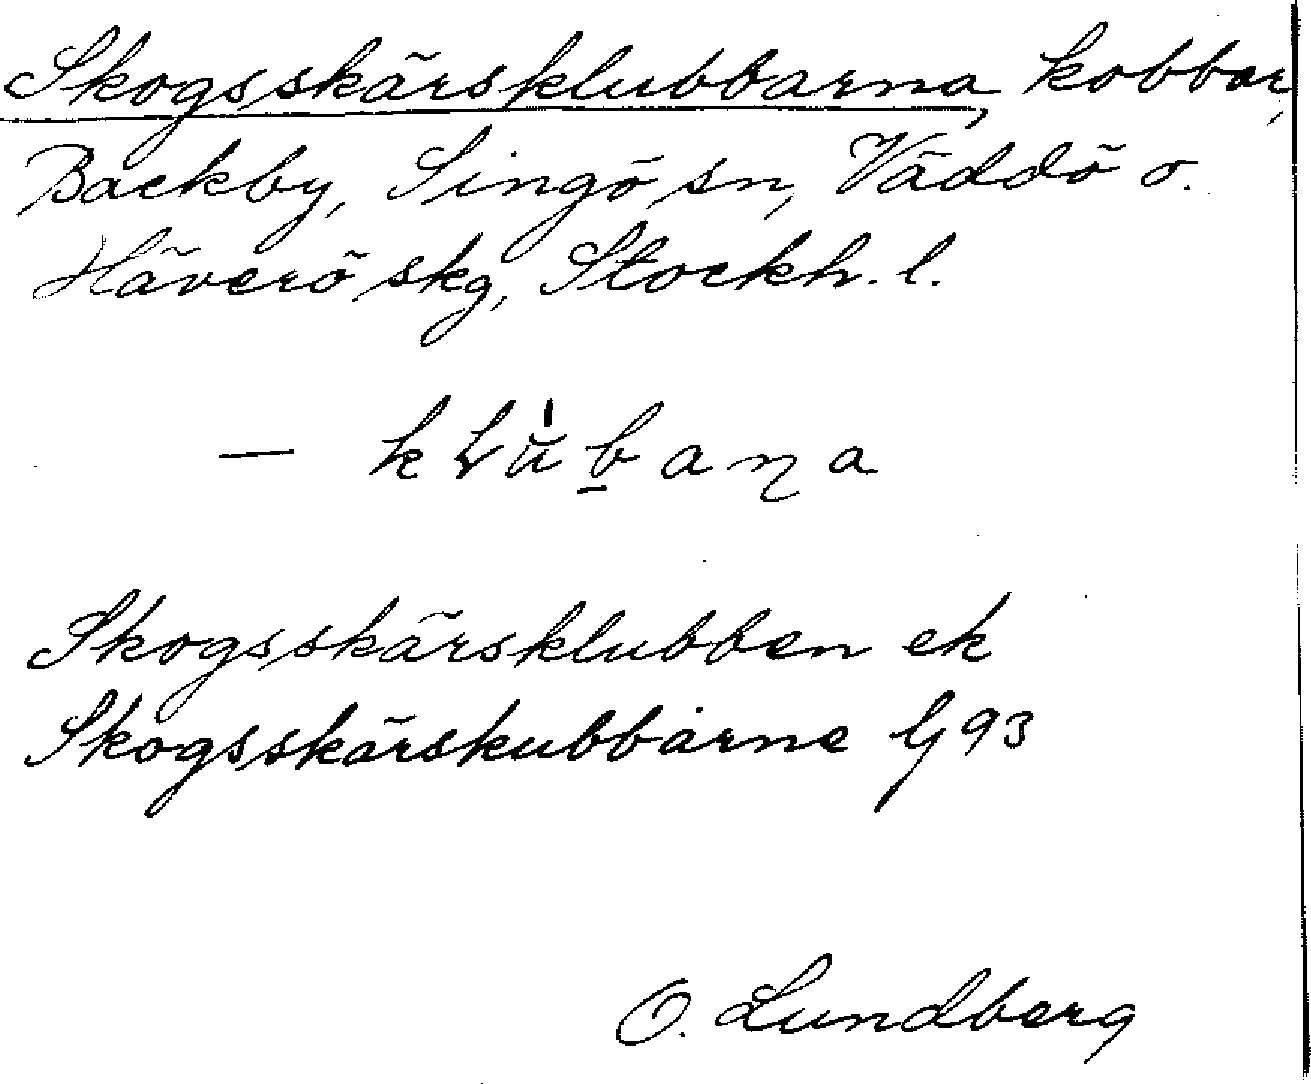 Skogsskärsklubbarna, kobbar,
Backby, Singö sn, Väddö o.
Häverö skg, Stockh. l.
— kLŭ̀b̲aɳa
Skogsskärsklubben ek
Skogsskärskubbarne G 93
O. Lundberg